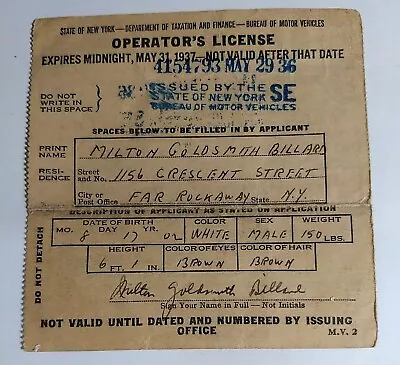 STATE OF NEW YORK—DEPARTMENT OF TAXATION AND FINANCE—BUREAU OF MOTOR VEHICLES
OPERATOR'S LICENSE
EXPIRES MIDNIGHT, MAY 31, 1937—NOT VALID AFTER THAT DATE
4154793 MAY 29 36
DO NOT WRITE IN THIS SPACE
ISSUED BY THE
STATE OF NEW YORK
BUREAU OF MOTOR VEHICLES
SE
SPACES BELOW TO BE FILLED IN BY APPLICANT
PRINT NAME MILTON GOLDSMITH BILLARD
RESIDENCE Street and No. 1156 CRESCENT STREET
City or Post Office FAR ROCKAWAY State N.Y.
DESCRIPTION OF APPLICANT AS STATED ON APPLICATION
DO NOT DETACH
DATE OF BIRTH COLOR SEX WEIGHT
MO. 8 DAY 17 YR. WHITE MALE 150 LBS.
HEIGHT COLOR OF EYES COLOR OF HAIR
6 FT. 1 IN. BROWN BROWN
Milton Goldsmith Billard
Sign Your Name in Full — Not Initials
NOT VALID UNTIL DATED AND NUMBERED BY ISSUING OFFICE
M.V. 2